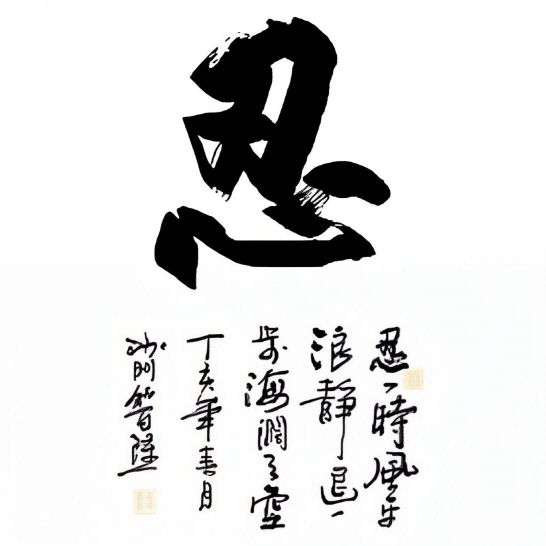 忍
忍一時風平
浪靜退一
步海闊天空
丁亥年春月
沙門智